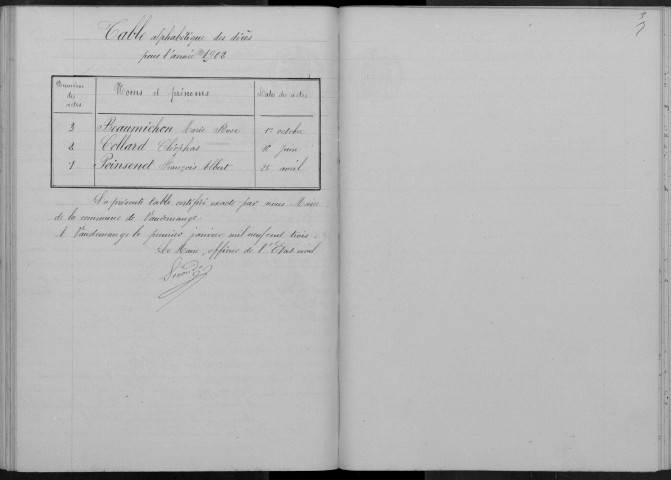 Table alphabétique des décès
pour l'année 1902.
Numéros des actes Noms et prénoms Dates des actes
3 Beaumichon Marie Rose 1er octobre
2 Collard Cléophas 18 juin
1 Poinsenet François Albert 25 avril
La présente table certifié exacte par nous Maire
de la commune de Vaudemange.
A Vaudemange le premier janvier mil neuf cent trois
Le Maire, officier de l'Etat civil